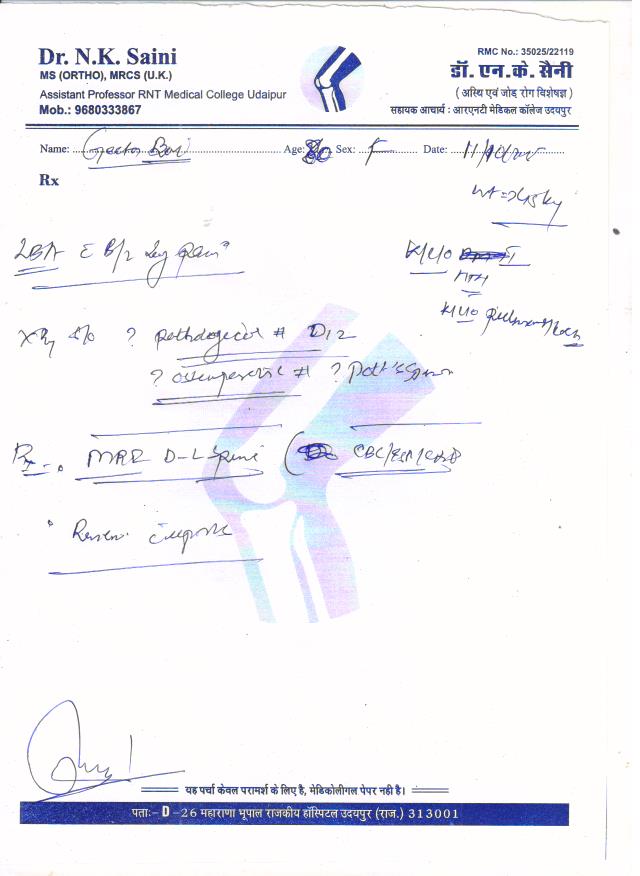 Dr. N.K. Saini
MS (ORTHO), MRCS (U.K.)
Assistant Professor RNT Medical College Udaipur
Mob.: 9680333867
RMC No.: 35025/22119
डॉ. एन. के. सैनी
( अस्थि एवं जोड़ रोग विशेषज्ञ )
सहायक आचार्य : आरएनटी मेडिकल कॉलेज उदयपुर
Name: Bai Age: 80 Sex: F Date: 11/
Rx
wt = 45 kg
LBA c B/L Leg pain
K/C/O
HTN
K/C/O
X Ray s/o ? pathological # D12
? osteoporotic # ? Pott's spine
Rx MRI D-L Spine ( CBC/ESR/CRP
Review c reports
यह पर्चा केवल परामर्श के लिए है, मेडिकोलीगल पेपर नही है।
पता:- D - 26 महाराणा भूपाल राजकीय हॉस्पिटल उदयपुर (राज.) 313001